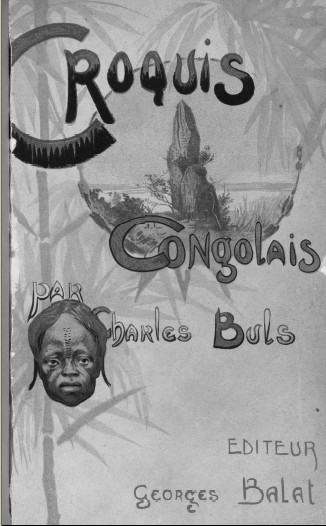 CROQUIS
CONGOLAIS
PAR
CHARLES BULS
EDITEUR
GEORGES BALAT